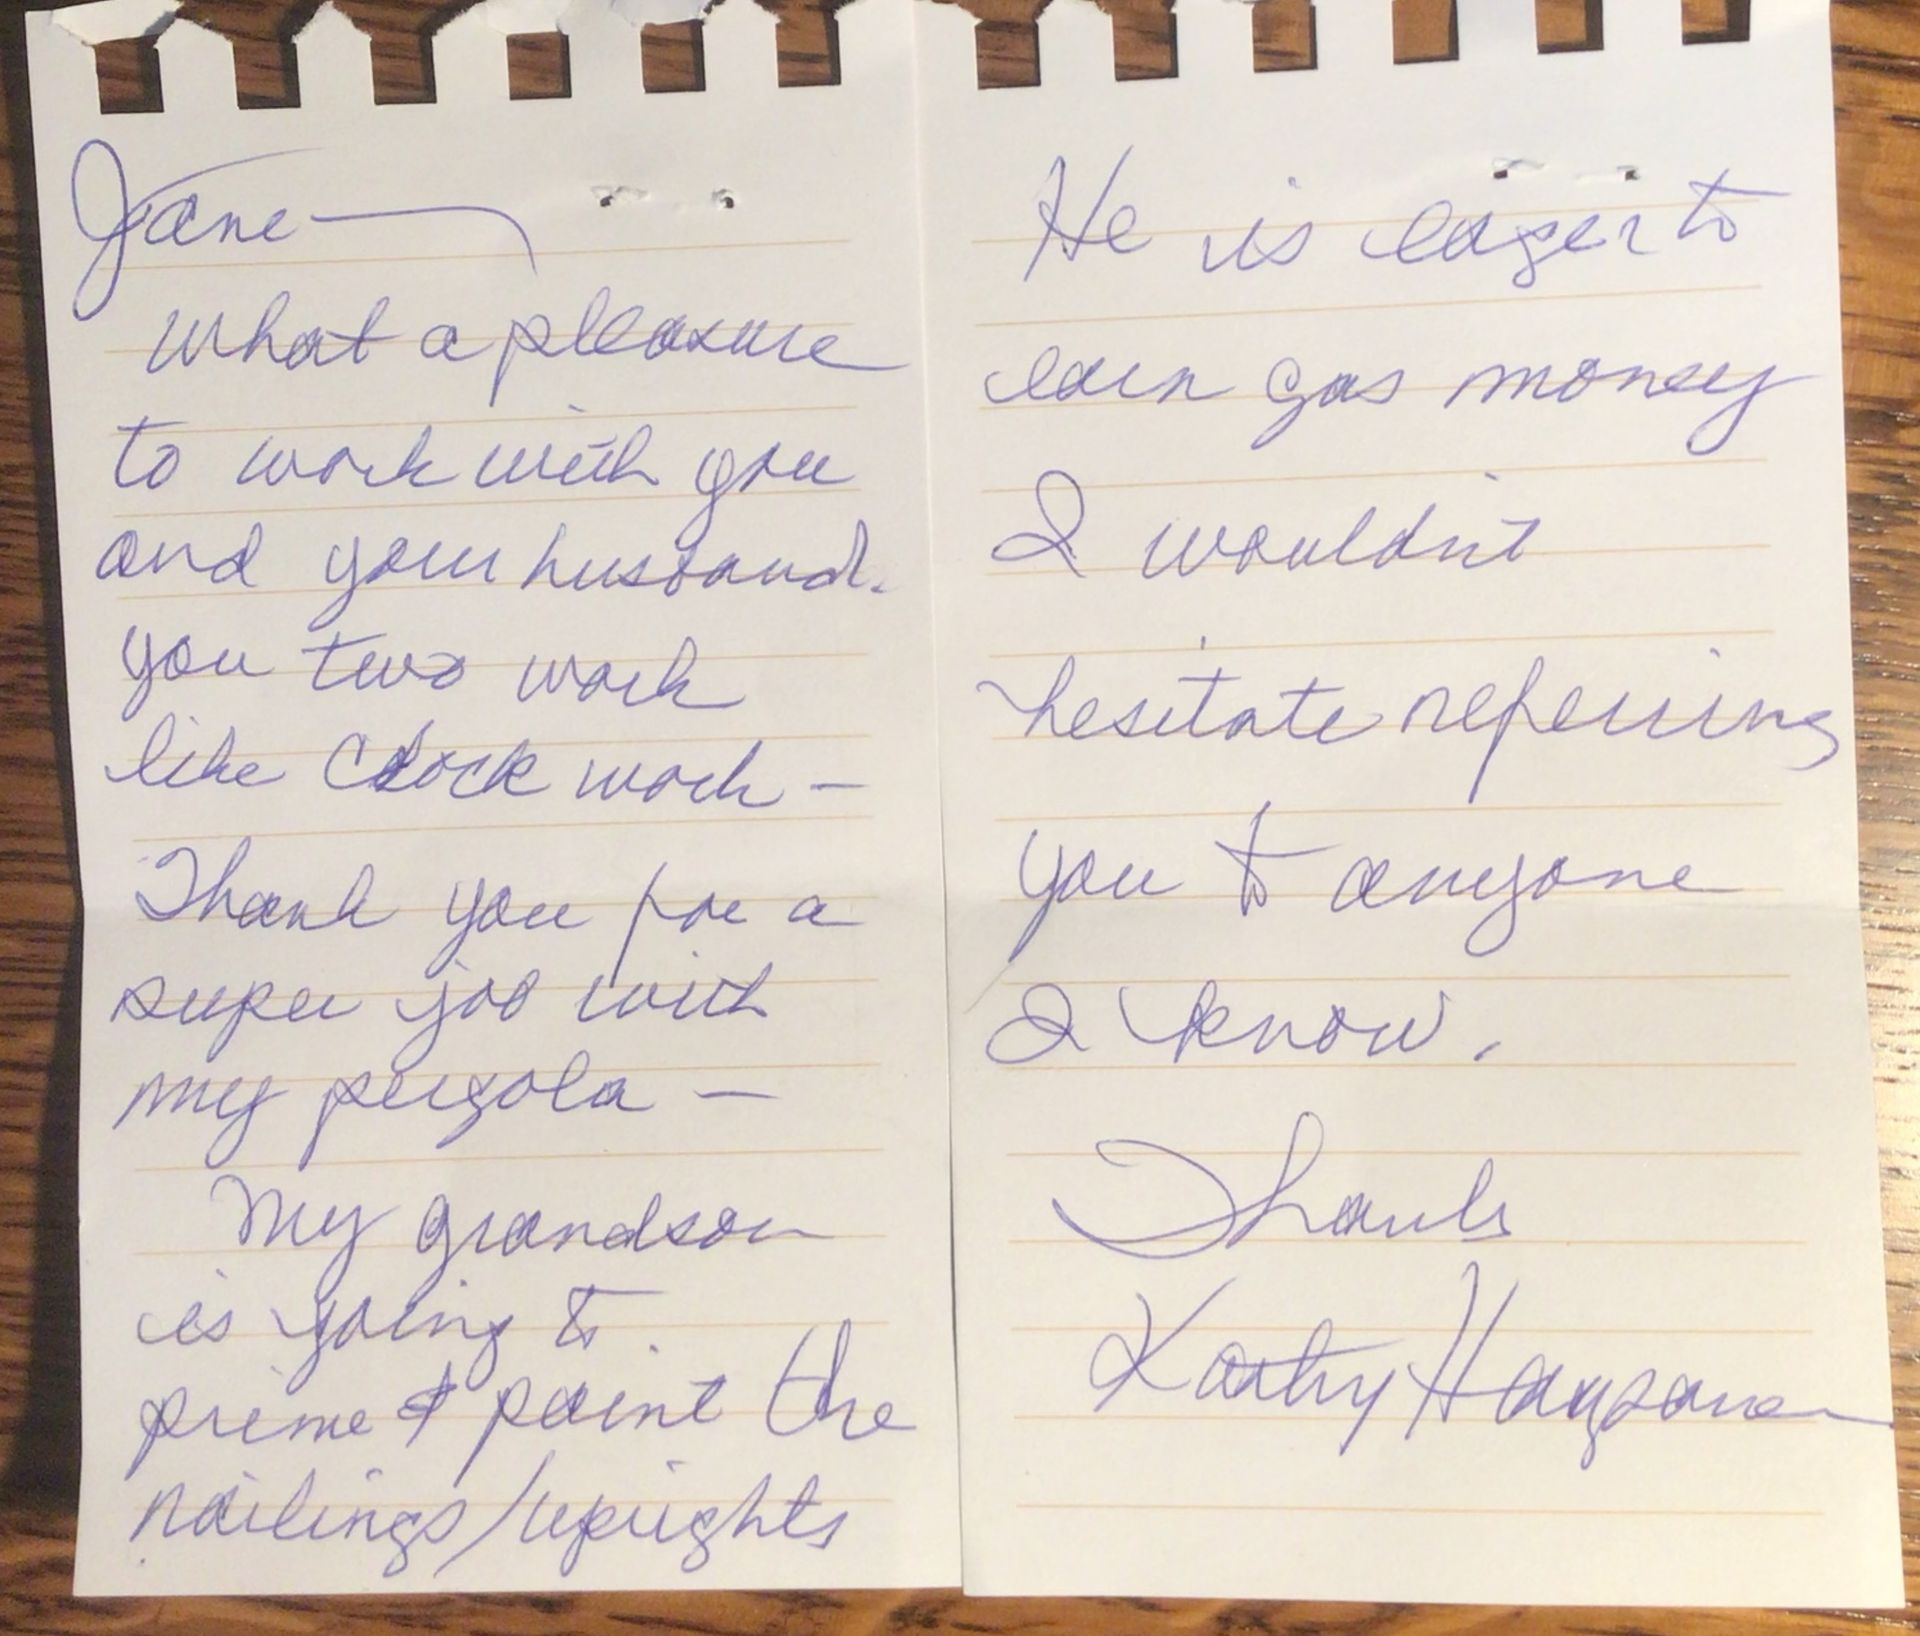 Jane —
What a pleasure
to work with you
and your husband.
you two work
like Clock work —
Thank you for a
super job with
my pergola —
My grandson
is going to
prime & paint the
railings/uprights
He is eager to
earn gas money
I wouldn't
hesitate referring
you to anyone
I know.
Thanks
Kathy